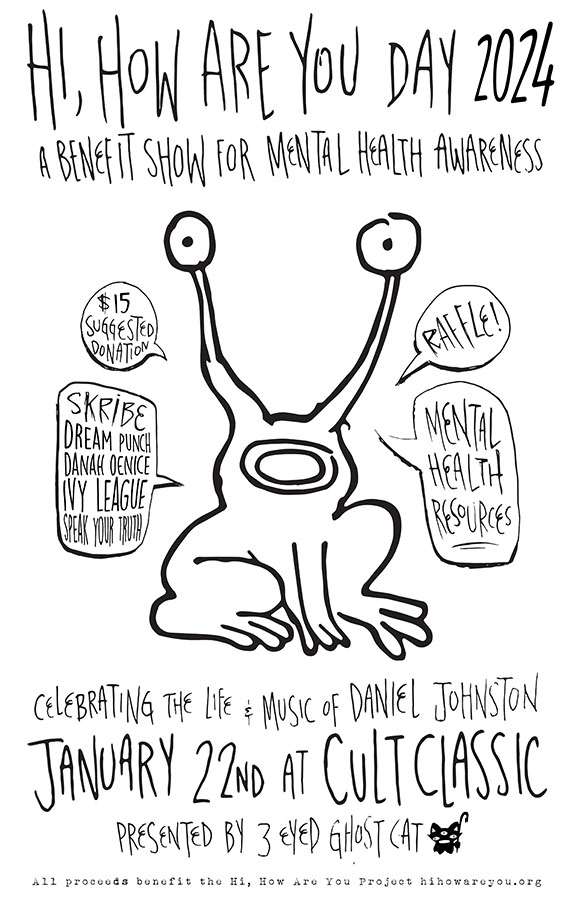 HI, HOW ARE YOU DAY 2024
A BENEFIT SHOW FOR MENTAL HEALTH AWARENESS
$15
SUGGESTED
DONATION
RAFFLE!
SKRIBE
DREAM PUNCH
DANAH DENICE
IVY LEAGUE
SPEAK YOUR TRUTH
MENTAL
HEALTH
RESOURCES
CELEBRATING THE LIFE & MUSIC OF DANIEL JOHNSTON
JANUARY 22ND AT CULT CLASSIC
PRESENTED BY 3 EYED GHOST CAT
All proceeds benefit the Hi, How Are You Project hihowareyou.org